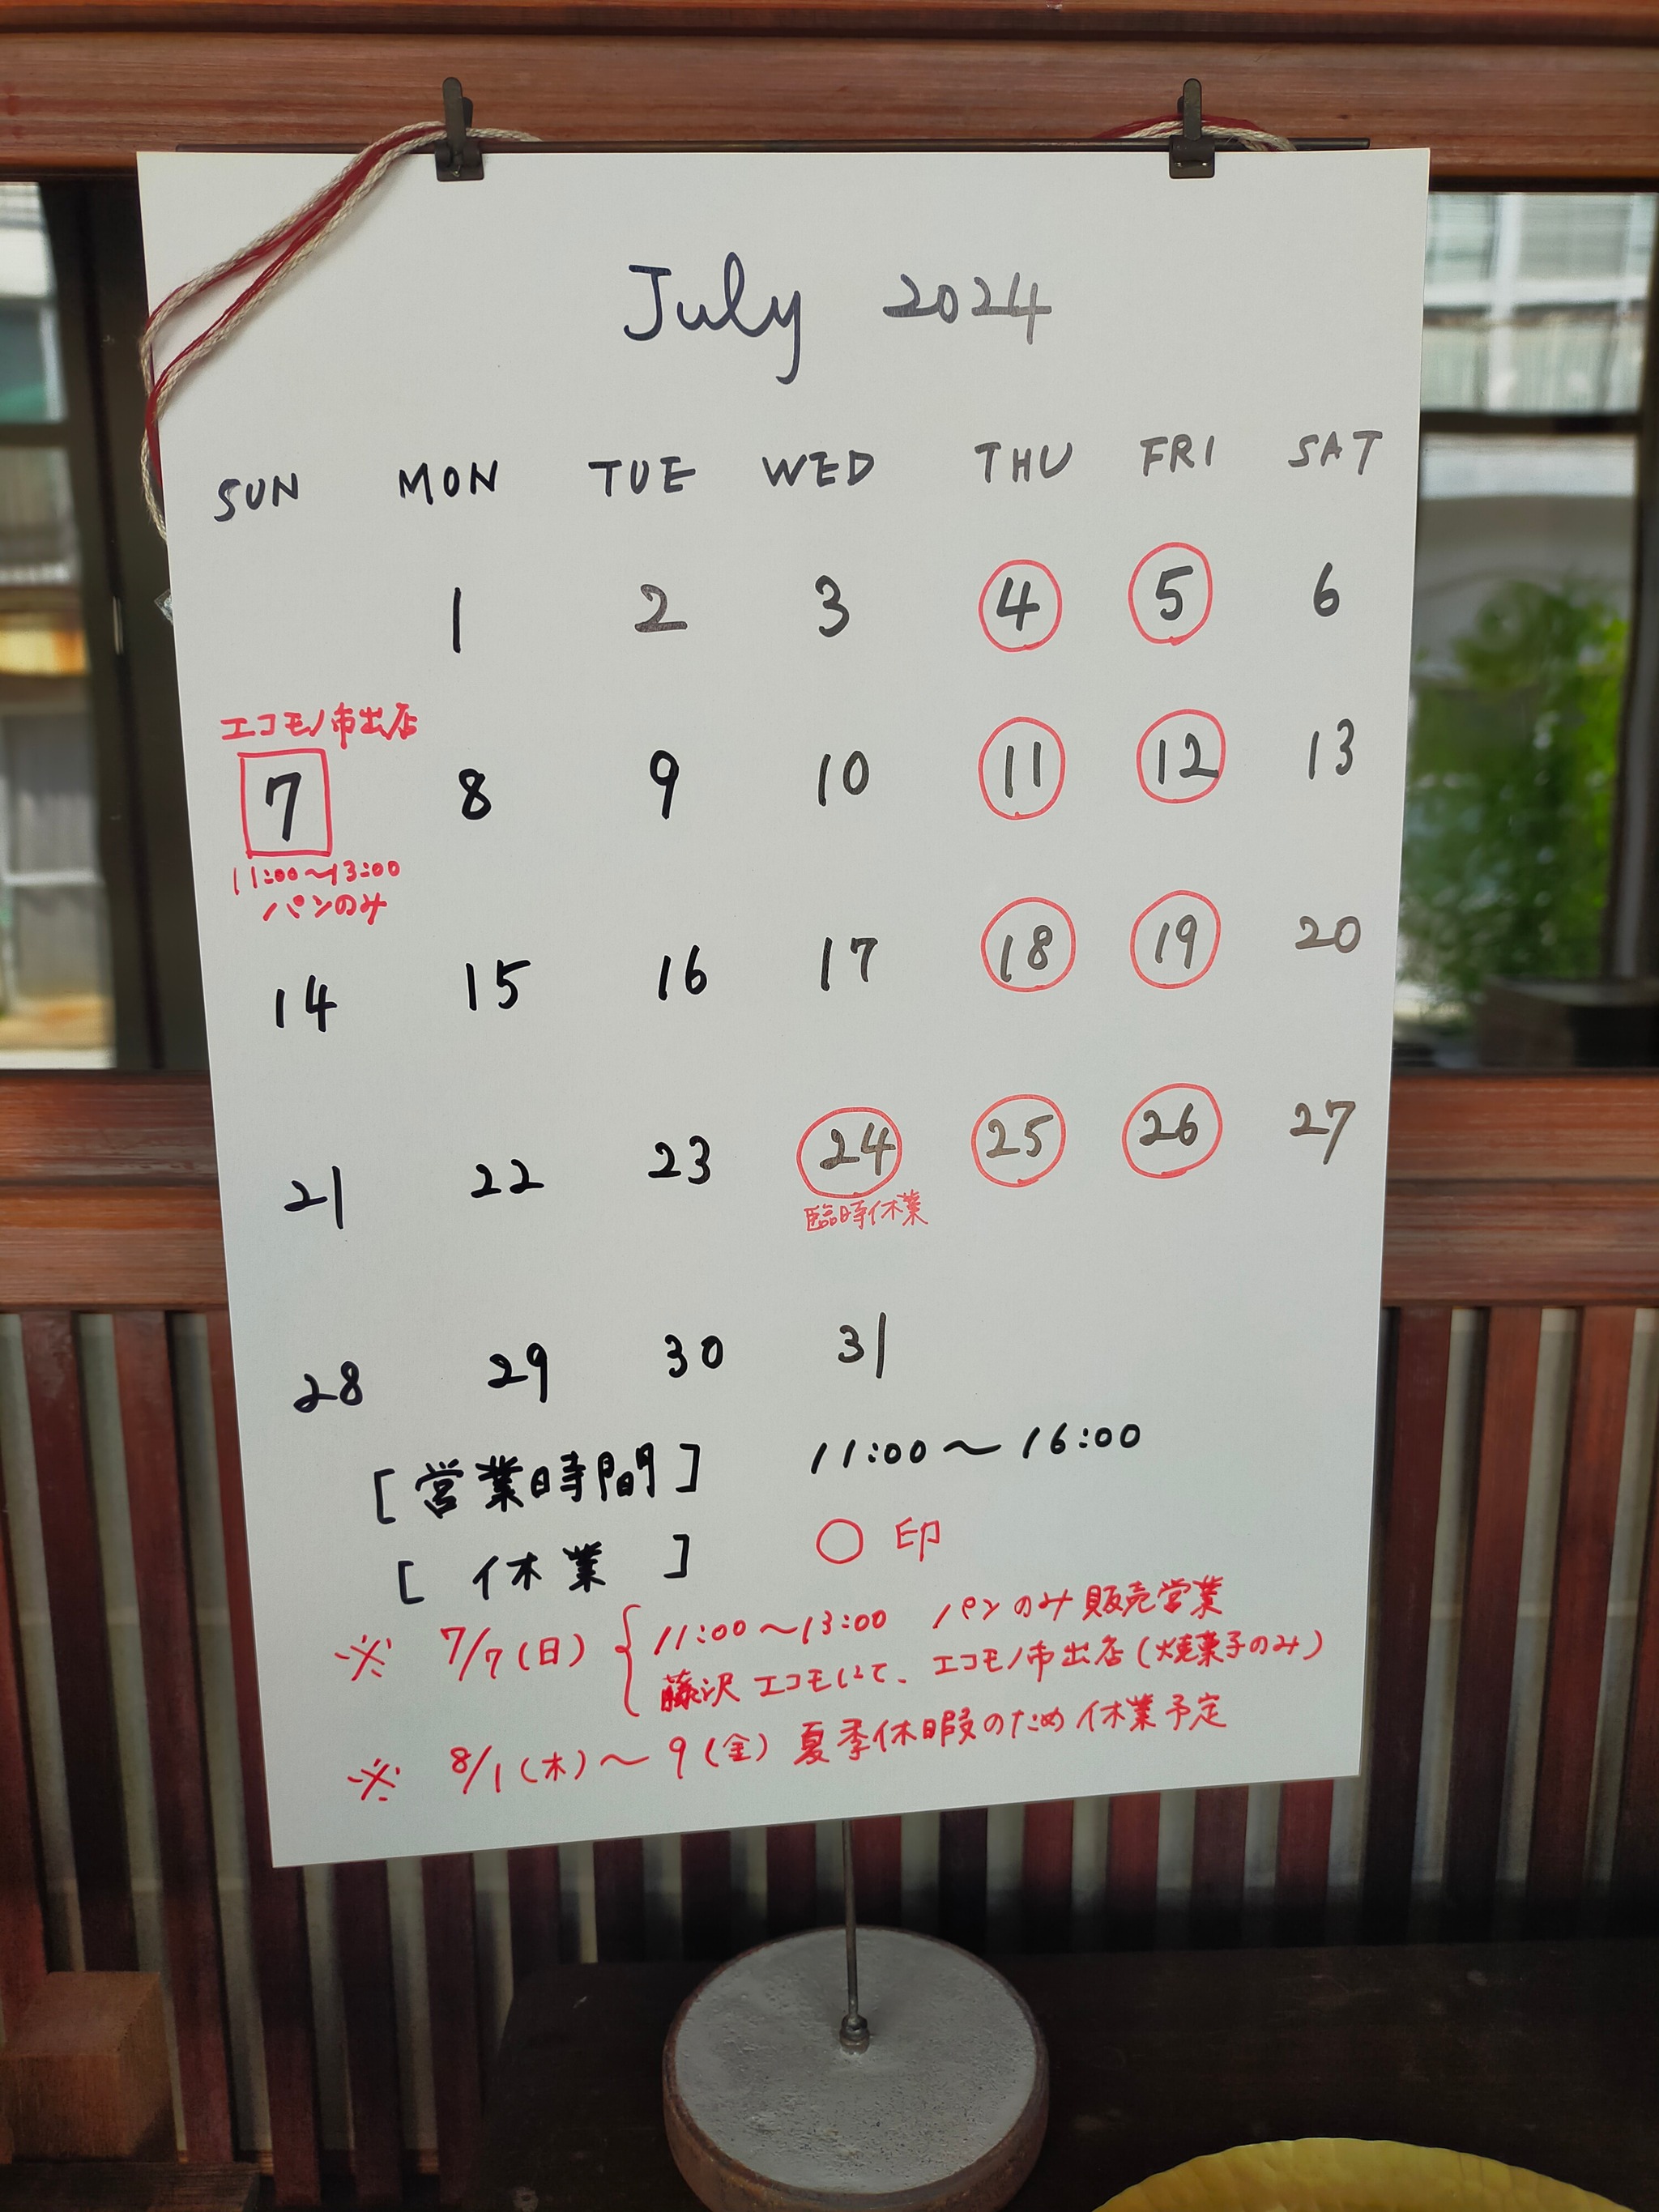 July 2024
SUN MON TUE WED THU FRI SAT
1 2 3 4 5 6
エコモノ市出店
7 8 9 10 11 12 13
11:00〜13:00
パンのみ
14 15 16 17 18 19 20
21 22 23 24 25 26 27
臨時休業
28 29 30 31
[営業時間] 11:00〜16:00
[休業] ○印
※ 7/7(日) { 11:00〜13:00 パンのみ販売営業
藤沢エコモにて、エコモノ市出店(焼菓子のみ)
※ 8/1(木)〜9(金) 夏季休暇のため休業予定